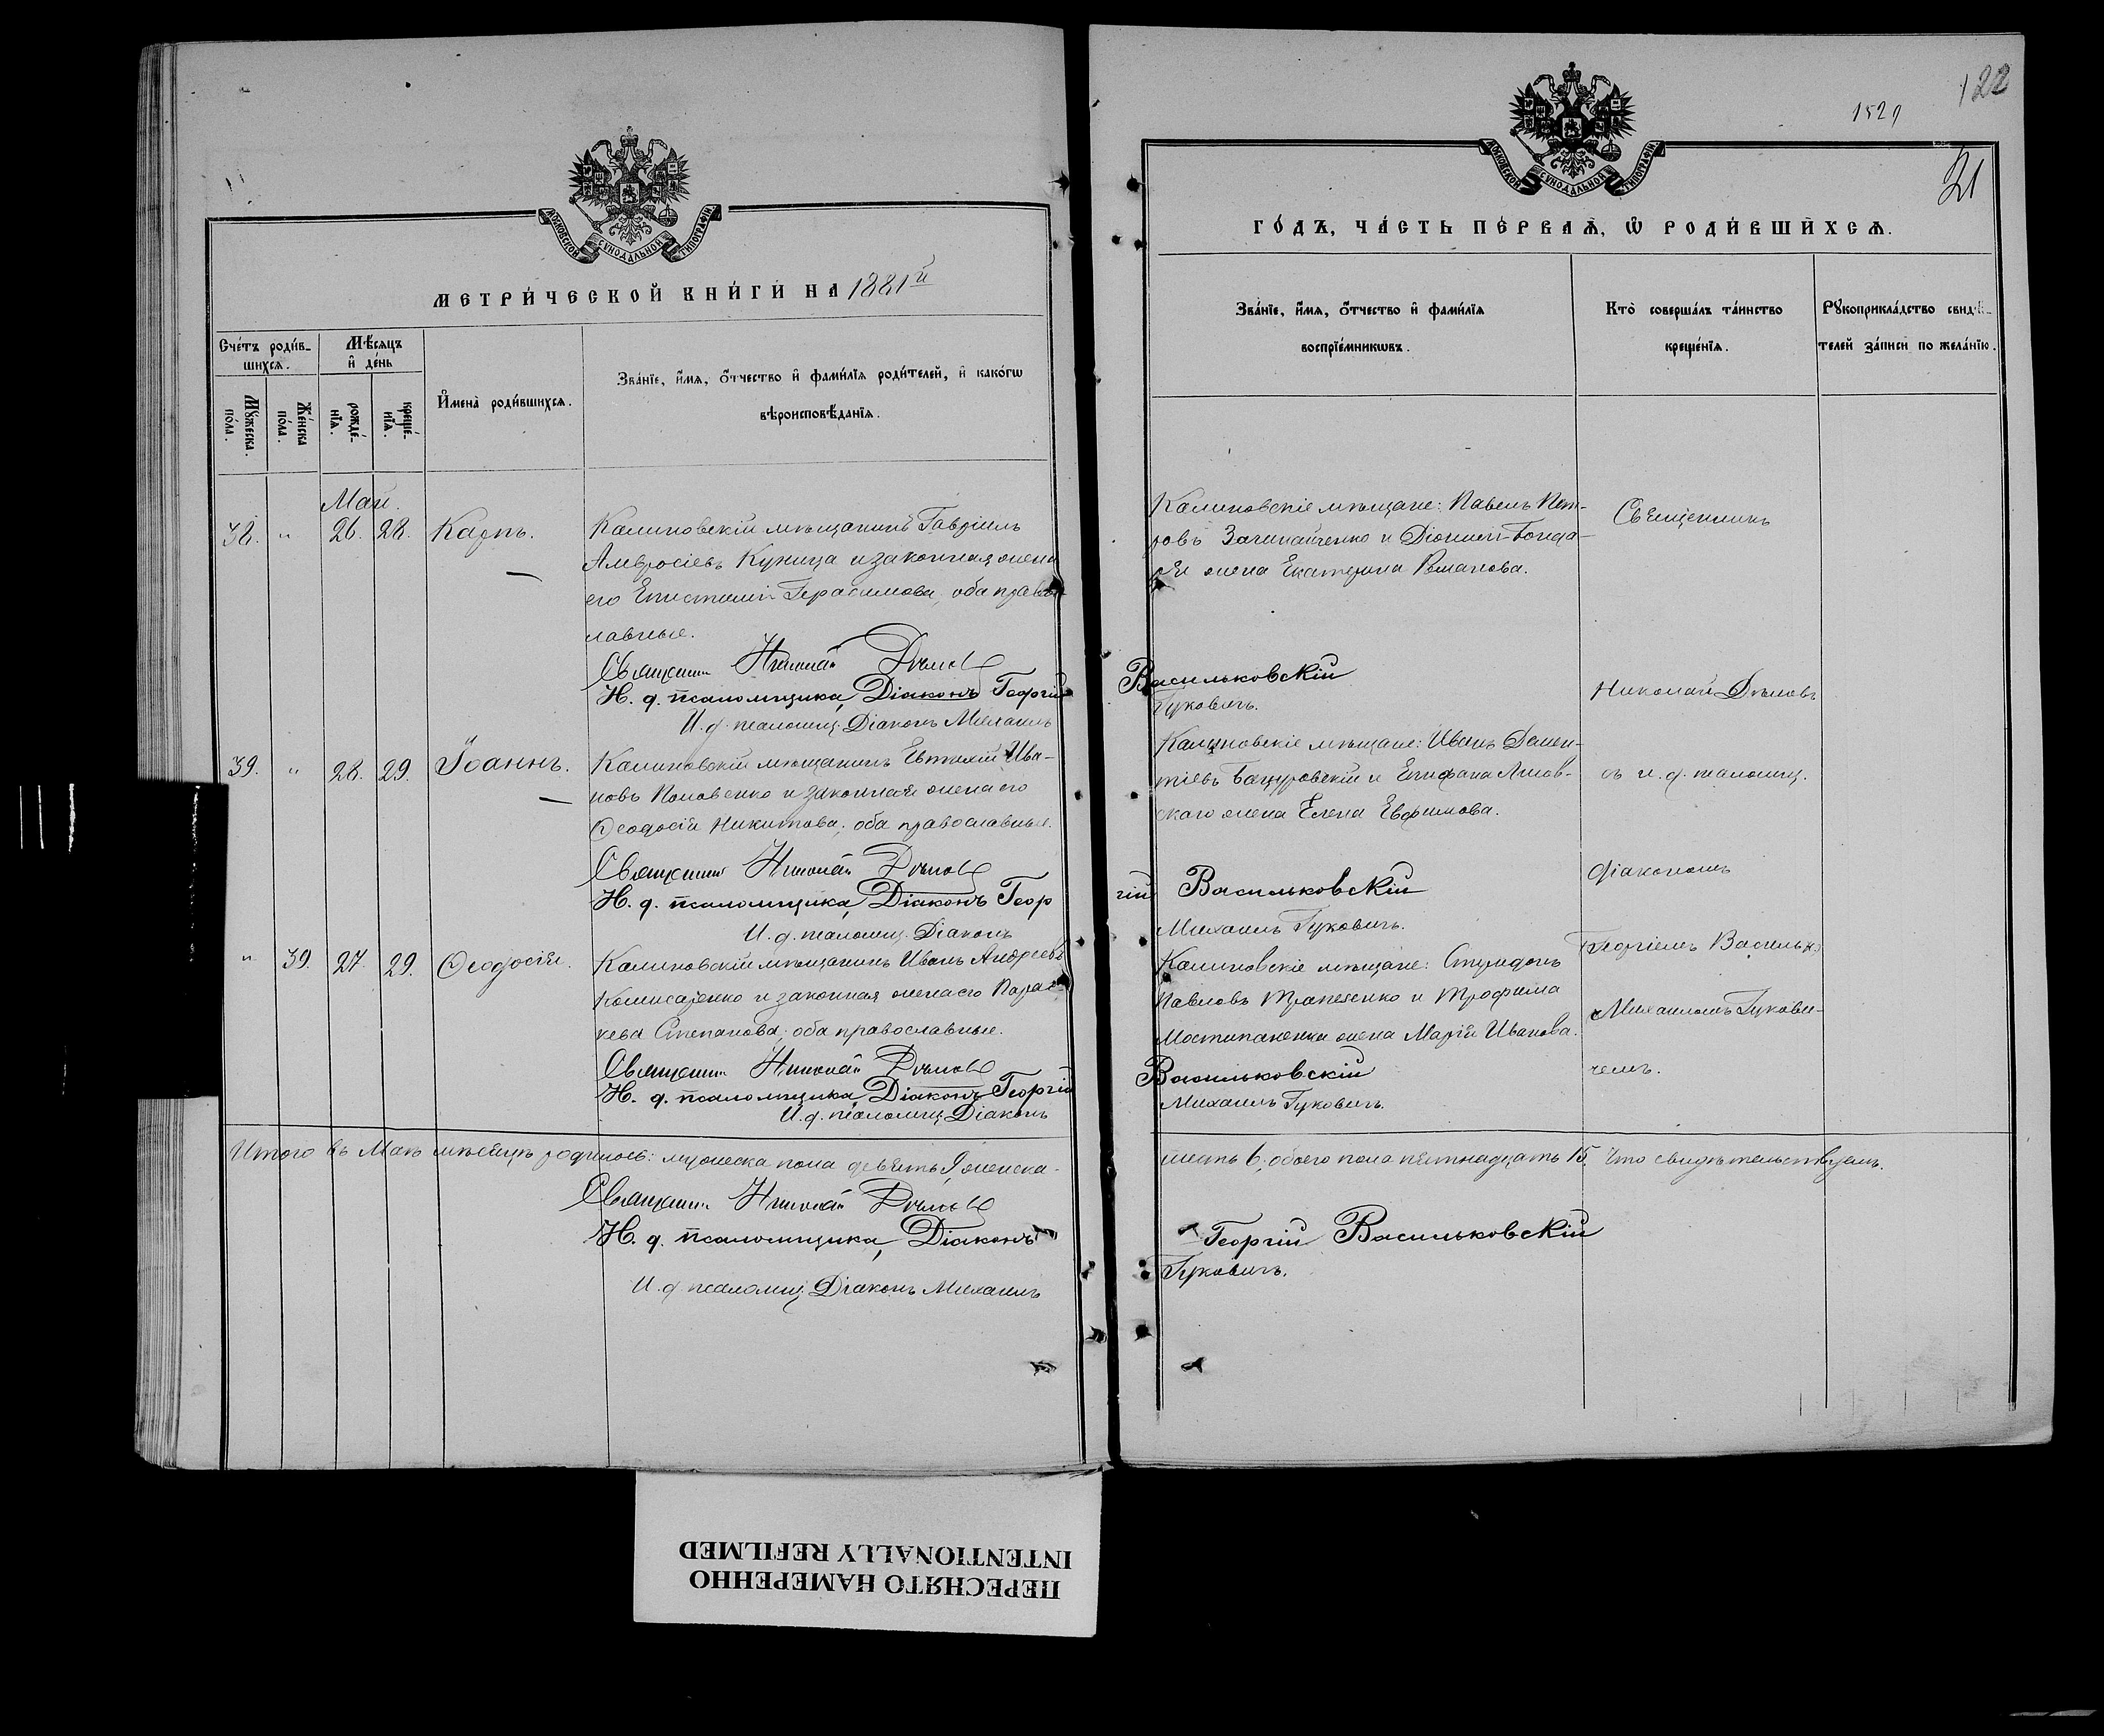 МОСКОВСКОЙ СѴНОДАЛЬНОЙ ТИПОГРАФІИ
МЕТРИ́ЧЕСКОЙ КНИ́ГИ НА 1881й
Сче́тъ роди́в-
шихсѧ.
Мѣ́сѧцъ
и҆ де́нь
Мꙋ́жеска
по́ла.
Же́нска
по́ла.
рожде́-
нїѧ.
креще́-
нїѧ.
И҆мена̀ роди́вшихсѧ.
Зва́нїе, и҆́мѧ, ѻ҆́тчество и҆ фами́лїѧ роди́телей, и҆ како́гѡ
вѣроисповѣ́данїѧ.
Май.
38. " 26. 28. Карпъ.
Калиновскій мѣщанинъ Гавріилъ
Амвросіевъ Куница и законная жена
его Епистимія Герасимова, оба право-
славные.
Священ. Николай
Н. д. псаломщика, Діаконъ Георгій
И. д. псаломщ. Діаконъ Михаилъ
39. " 28. 29. Іоаннъ.
Калиновскій мѣщанинъ Евтихій Ива-
новъ и законная жена его
Ѳеодосія Никитова, оба православные.
Священ. Николай
Н. д. псаломщика, Діаконъ Геор
И. д. псаломщ. Діаконъ
" 39. 27. 29. Ѳеодосія.
Калиновскій мѣщанинъ Иванъ Андреевъ
Комисаренко и законная жена его Парас-
кева Степанова, оба православные.
Священ. Николай
Н. д. псаломщика, Діаконъ Георгій
И. д. псаломщ. Діаконъ
Итого въ Маѣ мѣсяцѣ родилось: мужеска пола девять 9, женска-
Священ. Николай
Н. д. псаломщика, Діаконъ
И. д. псаломщ. Діаконъ Михаилъ
1529
122
21
МОСКОВСКОЙ СѴНОДАЛЬНОЙ ТИПОГРАФІИ
ГО́ДЪ, ЧА́СТЬ ПЕ́РВАѦ, Ѡ҆ РОДИ́ВШИХСѦ.
Зва́нїе, и҆́мѧ, ѻ҆́тчество и҆ фами́лїѧ
воспрїе́мникѡвъ.
Кто̀ соверша́лъ та́инство
креще́нїѧ.
Рꙋкоприкла́дство свидѣ́-
телей за́писи по жела́нїю.
Калиновскіе мѣщане: Павелъ Пет-
ровъ и Діонисія Бонда-
ря жена Екатерина Романова.
Васильковскій
Гуковичъ.
Калиновскіе мѣщане: Иванъ Демен-
тіевъ Бацуровскій и Епифана Лисов-
скаго жена Елена Евфимова.
гій Васильковскій
Михаилъ Гуковичъ.
Калиновскіе мѣщане: Спиридонъ
Павловъ и Трофима
жена Марія Иванова.
Васильковскій
Михаилъ Гуковичъ.
Священникъ
Николай
съ и. д. псаломщ.
Діакономъ
Георгіемъ
Михаиломъ Гукови-
чемъ.
шесть 6, обоего пола пятнадцать 15. Что свидѣтельствуемъ.
Георгій Васильковскій
Гуковичъ.
ПЕРЕСНЯТО НАМЕРЕННО
INTENTIONALLY REFILMED